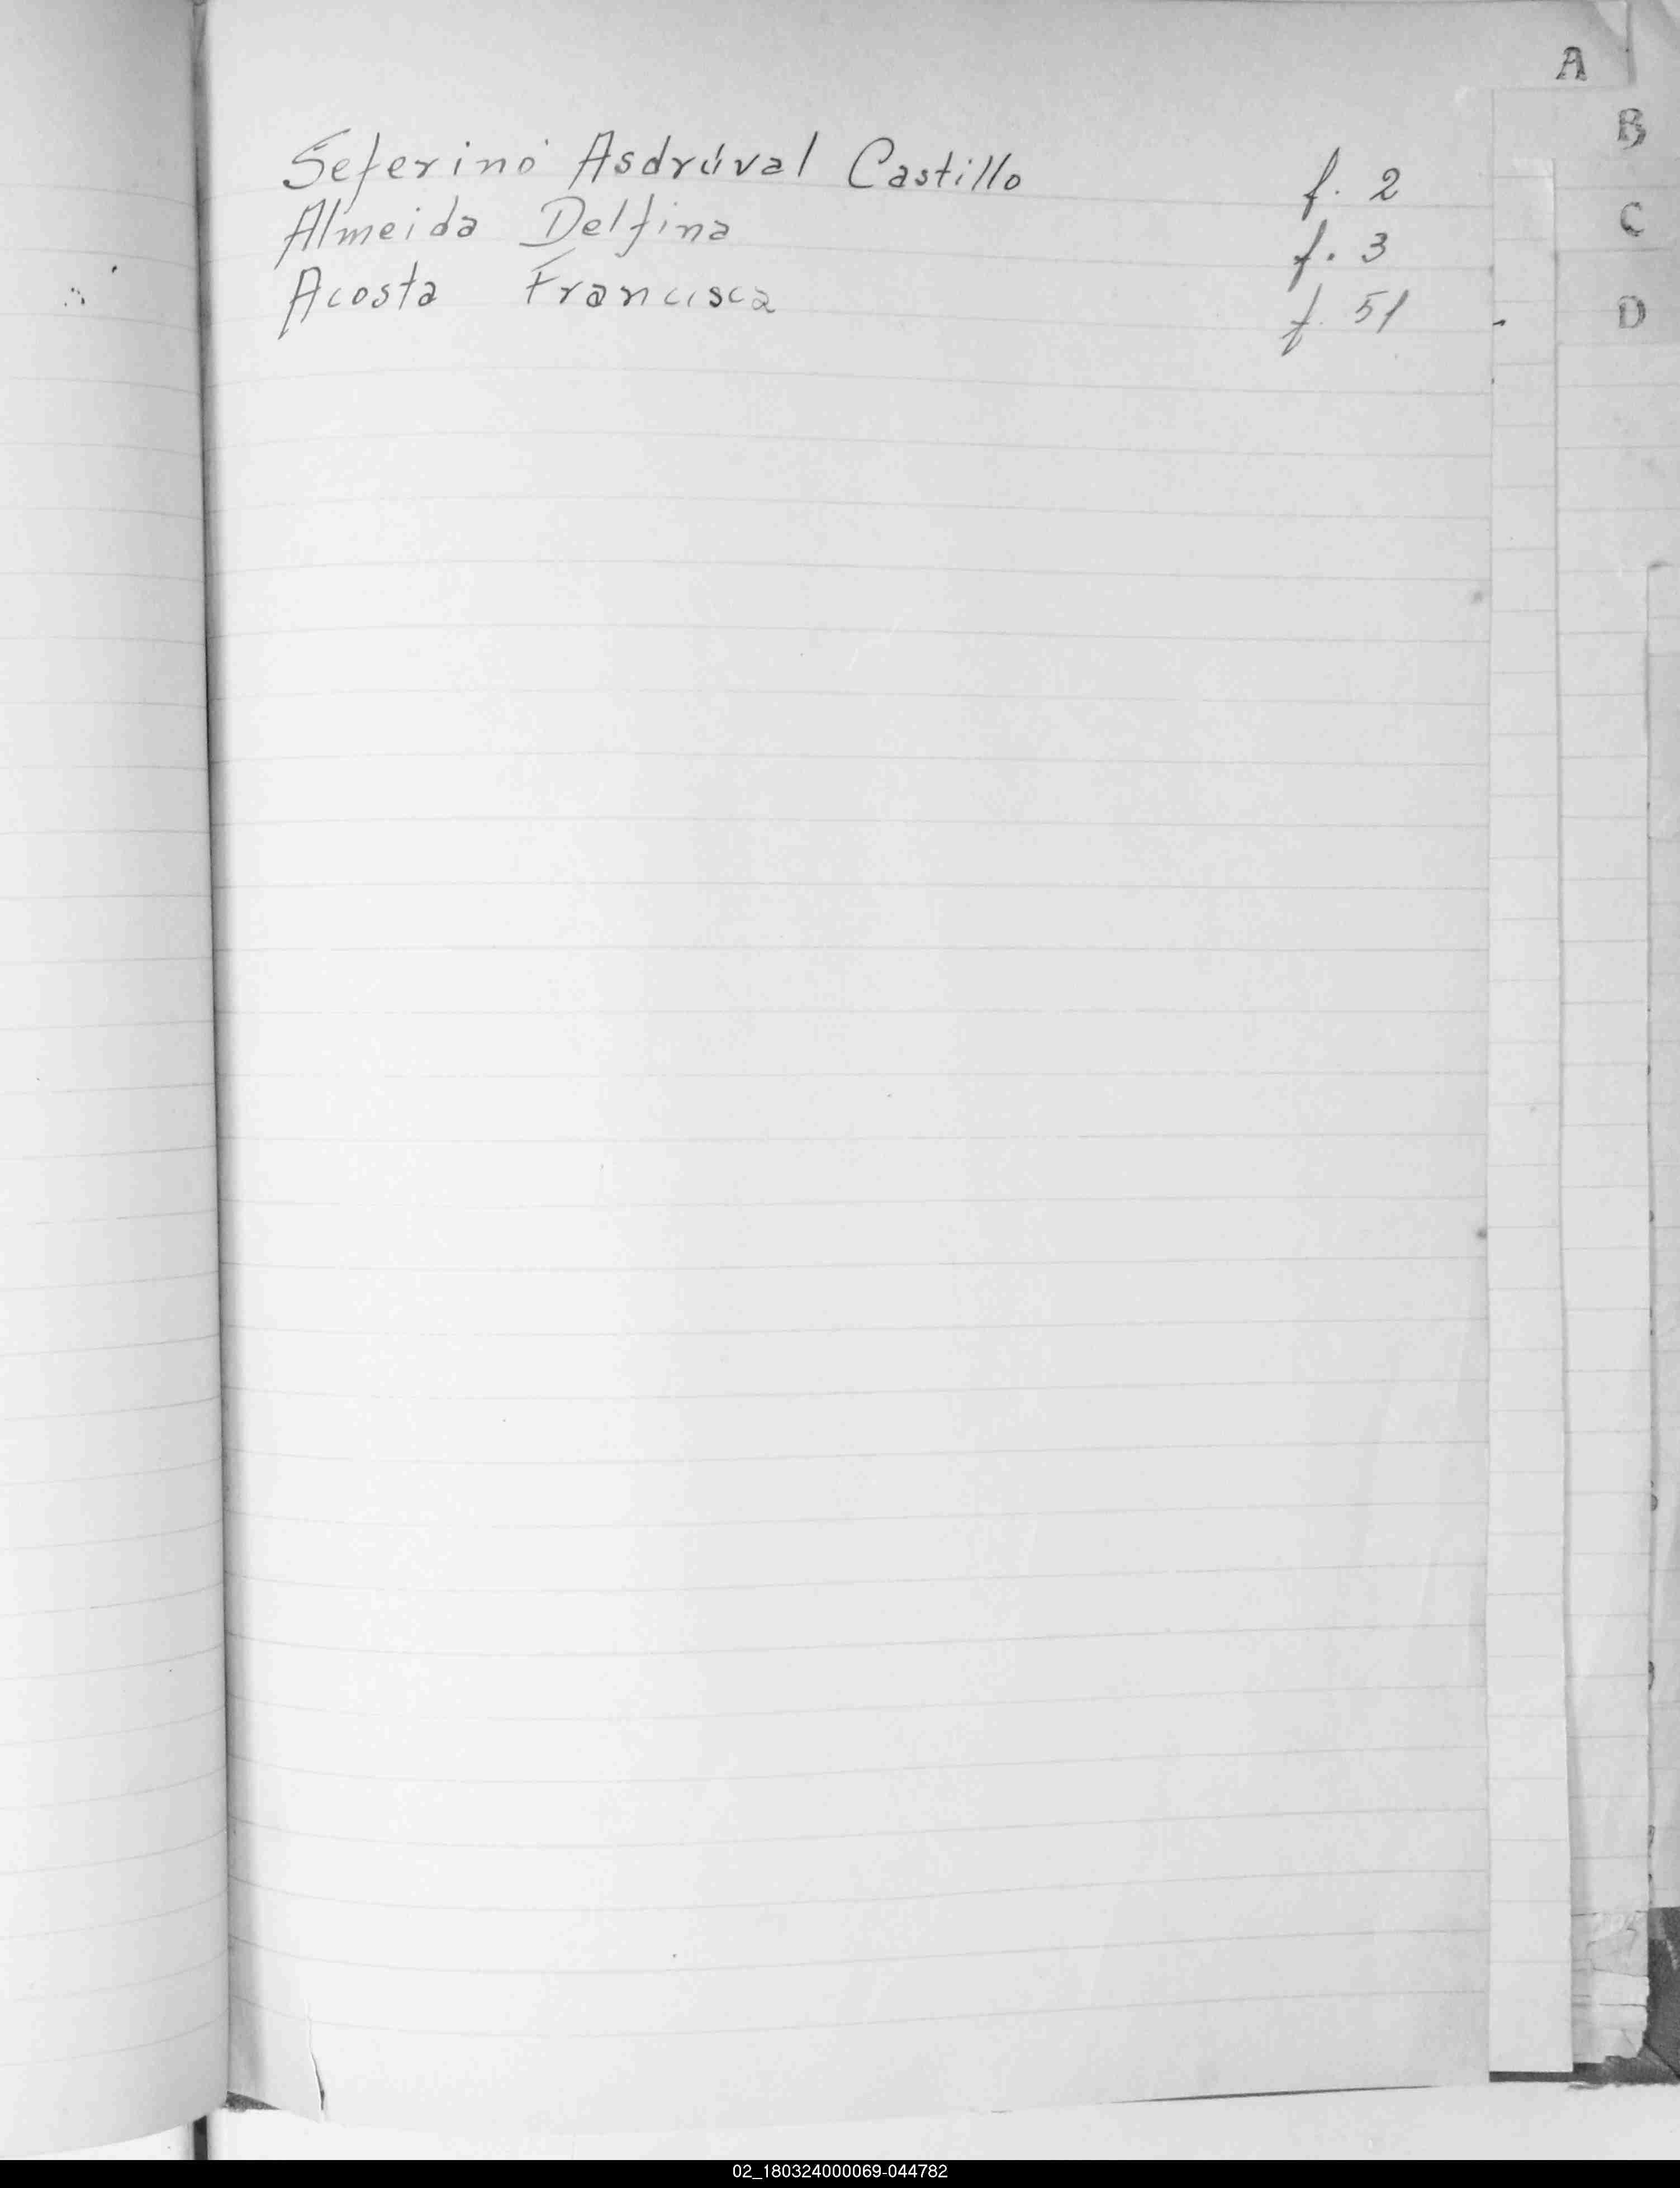 A
B
C
D
Seferino Asdrúval Castillo f. 2
Almeida Delfina f. 3
Acosta Francisca f. 51
02_180324000069-044782